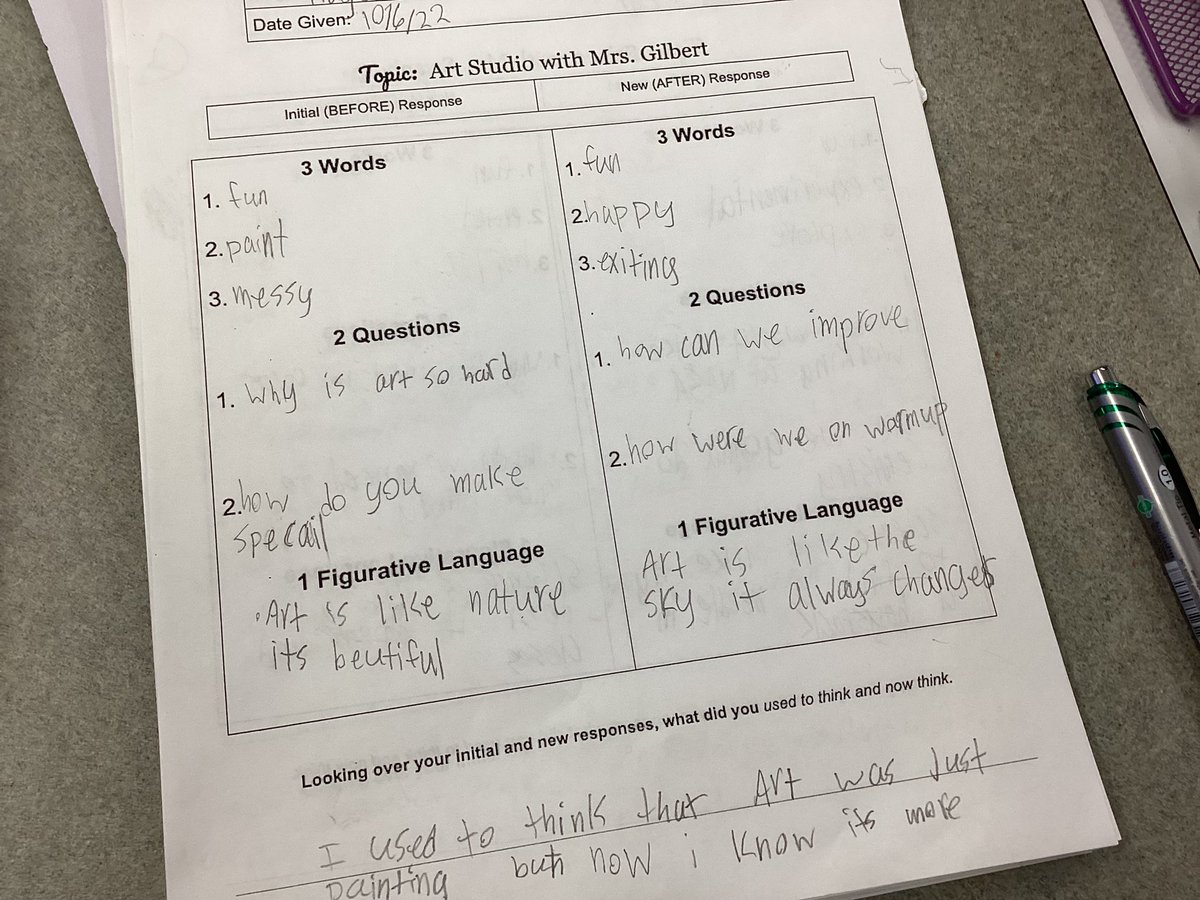 Date Given: 10/6/22
Topic: Art Studio with Mrs. Gilbert
Initial (BEFORE) Response
New (AFTER) Response
3 Words
1. fun
2. paint
3. messy
2 Questions
1. Why is art so hard
2. how do you make
specail
1 Figurative Language
Art is like nature
its beutiful
3 Words
1. fun
2. happy
3. exiting
2 Questions
1. how can we improve
2. how were we on warmup
1 Figurative Language
Art is like the
sky it always changes
Looking over your initial and new responses, what did you used to think and now think.
I used to think that Art was Just
painting but now i know its more